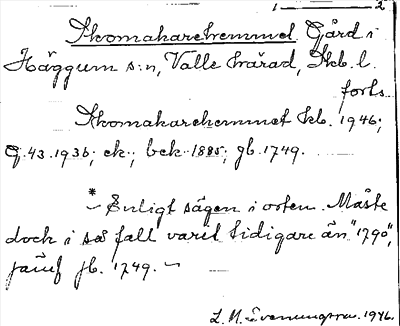 1 — 2
Skomakarehemmet Gård i
Häggum s:n, Valle härad, Skb. l.
forts.
Skomakarehemmet kb. 1946;
G. 43. 1936; ek.; bek 1885; gb. 1749.
*
~ Enligt sägen i orten. Måste
dock i så fall varit tidigare än "1790",
jämf jb. 1749. ~
L. M. 1946.